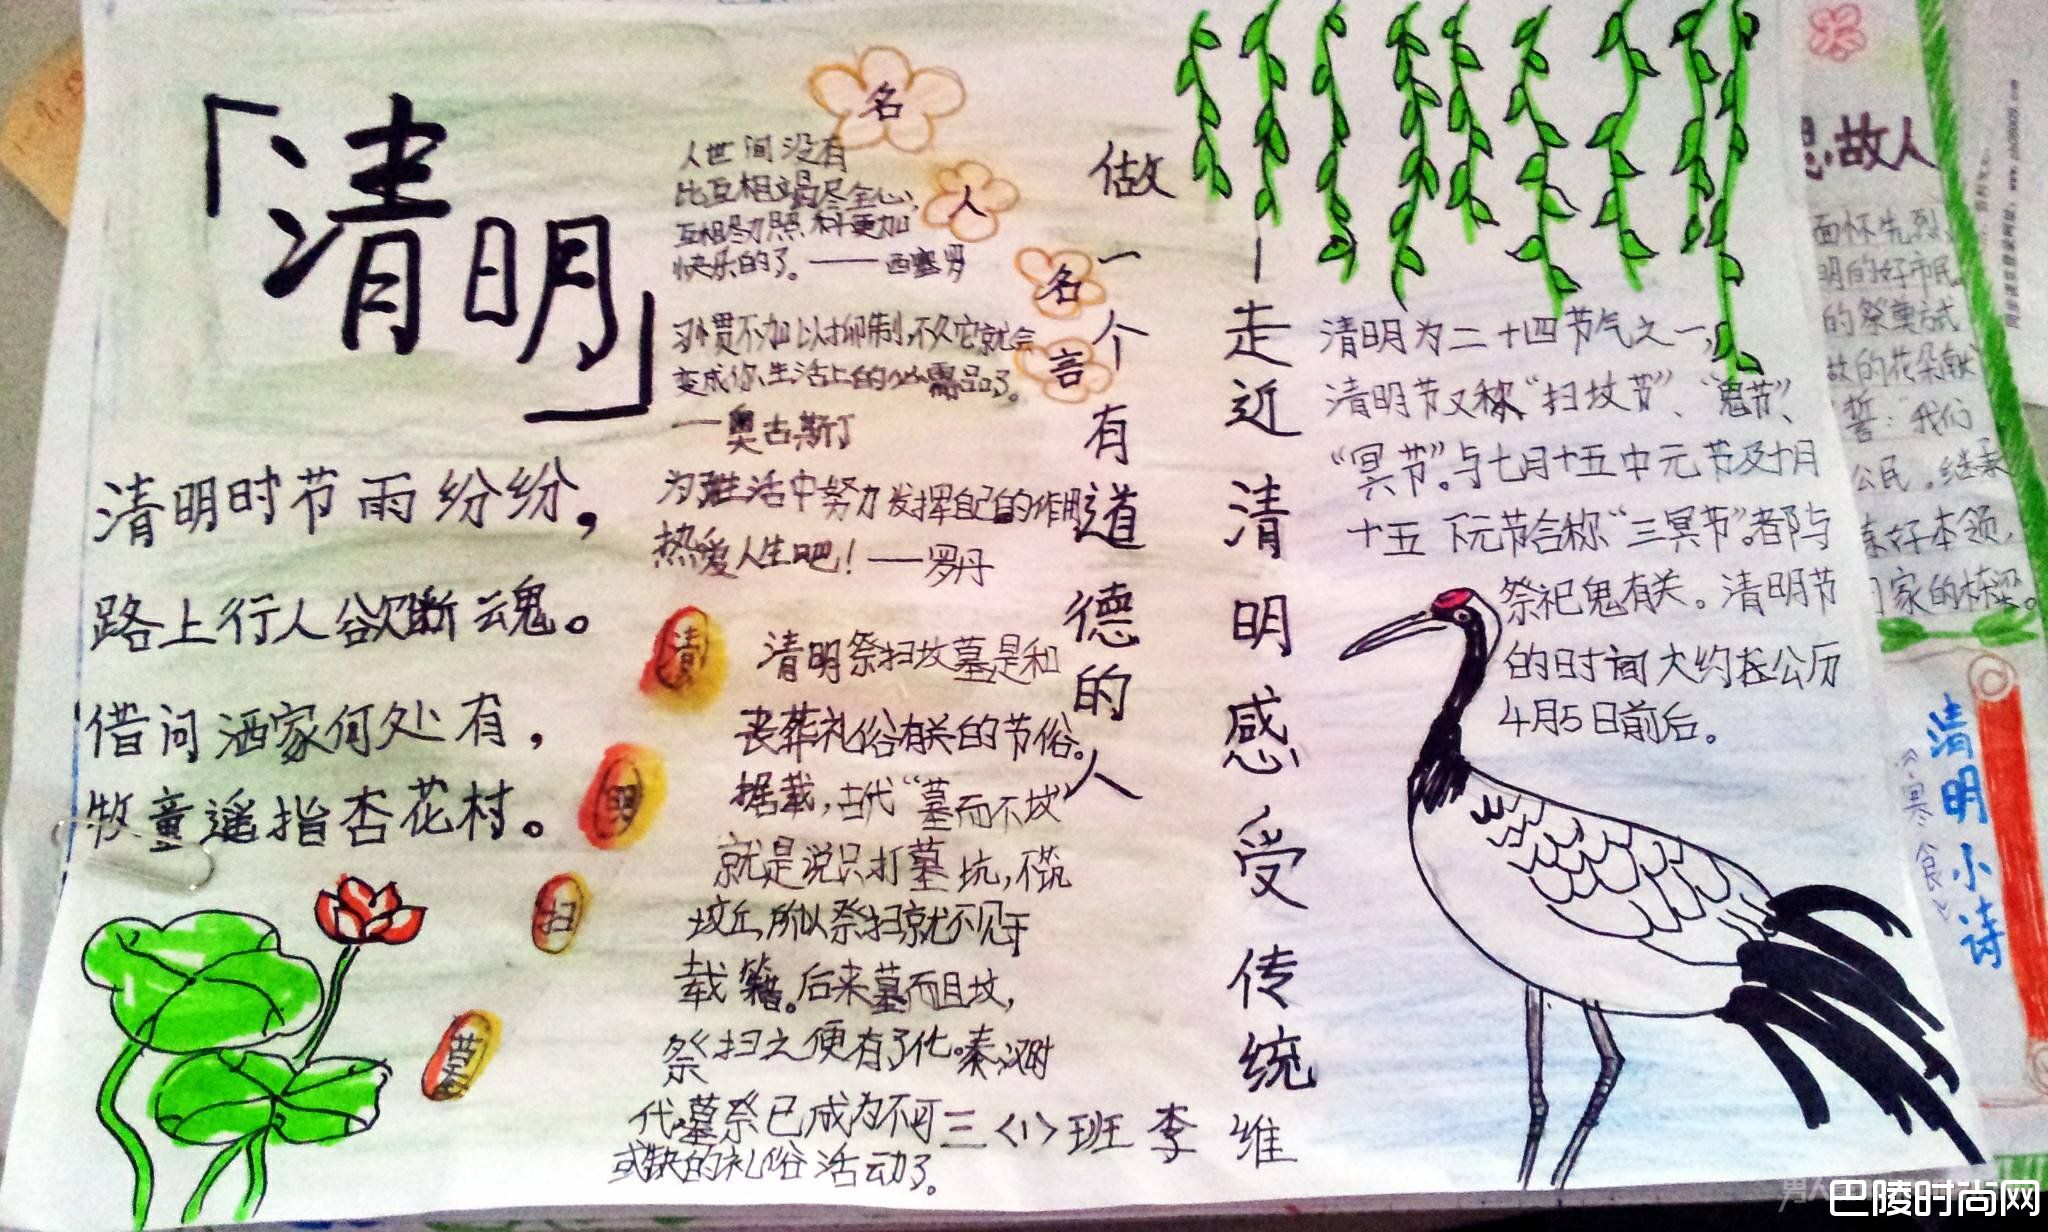 「清明」
清明时节雨纷纷，
路上行人欲断魂。
借问洒家何处有，
牧童遥指杏花村。
名
人
名
言
人世间没有
比互相竭尽全心、
互相尽力照料更加
快乐的了。——西塞罗
习惯不加以抑制，不久它就会
变成你生活上的必需品了。
——奥古斯丁
为在生活中努力发挥自己的作用
热爱人生吧！——罗丹
清
明
扫
墓
清明祭扫坟墓是和
丧葬礼俗有关的节俗。
据载，古代“墓而不坟”
就是说只打墓坑，不筑
坟丘，所以祭扫就不见于
载籍。后来墓而且坟，
祭扫之便有了化。秦汉时
代，墓祭已成为不可
或缺的礼俗活动了。
做一个有道德的人
走近清明感受传统
三〈1〉班 李维
清明为二十四节气之一，
清明节又称“扫坟节”、“鬼节”、
“冥节”。与七月十五中元节及十月
十五下元节合称“三冥节”。都与
祭祀鬼有关。清明节
的时间大约在公历
4月5日前后。
思故人
面怀先烈，
明的好市民。
的祭奠试
故的花朵献
誓：我们
公民，继承
练好本领，
家的栋梁。
清明小诗
《寒食》
巴陵时尚网